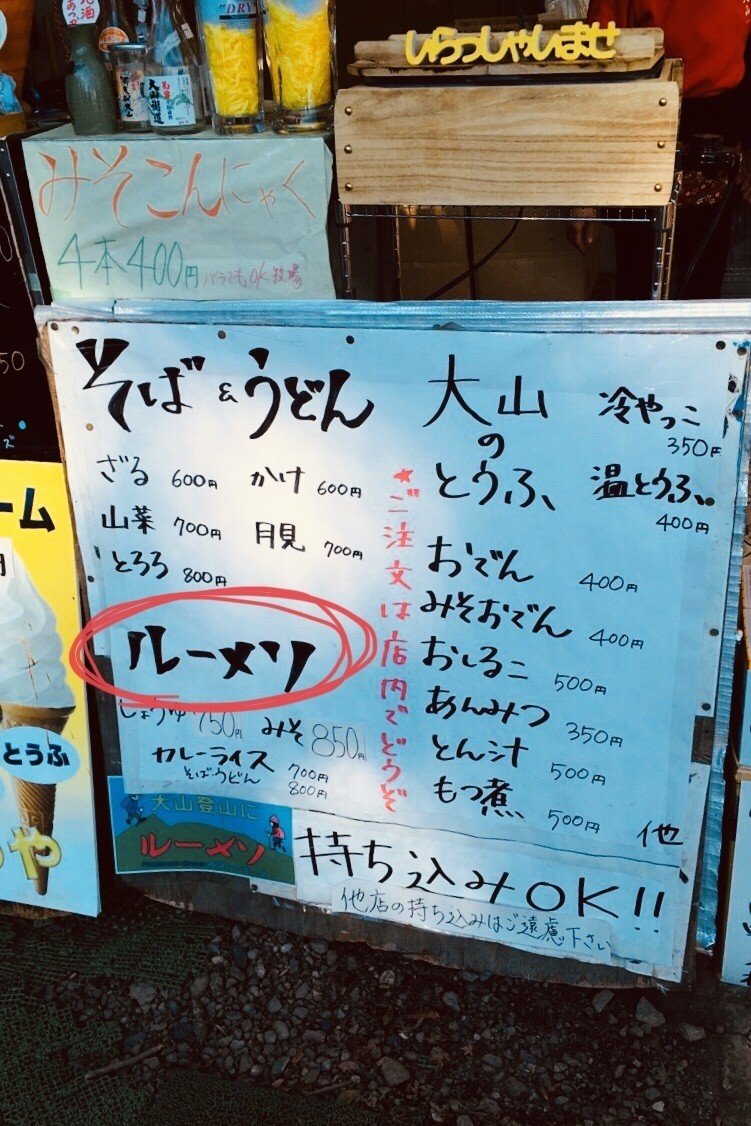 "DRY"
しらっしゃしませ
みそこんにゃく
4本400円 バラでもOK
そば&うどん
ざる 600円 かけ 600円
山菜 700円 月見 700円
とろろ 800円
ルーメソ
しょうゆ 750円 みそ 850円
カレーライス 700円
そばうどん 800円
大山登山に
ルーメソ
*ご注文は店内でどうぞ
大山のとうふ
冷やっこ
350円
温とうふ
400円
おでん 400円
みそおでん 400円
おしるこ 500円
あんみつ 350円
とん汁 500円
もつ煮 500円
他
持ち込みOK!!
他店の持ち込みはご遠慮下さい
ーム
とうふ
や